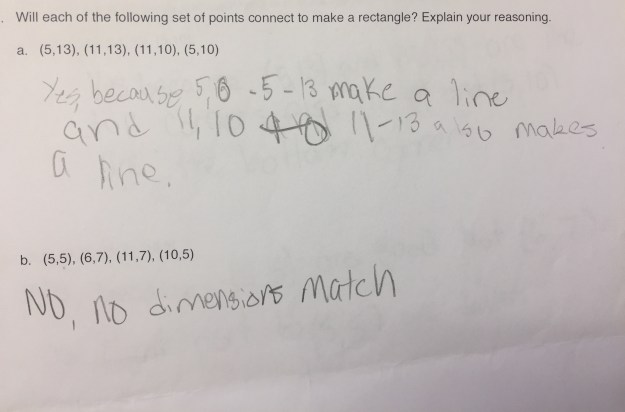 . Will each of the following set of points connect to make a rectangle? Explain your reasoning.
a. (5,13), (11,13), (11,10), (5,10)
Yes, because 5,10 -5-13 make a line
and 11, 10 11-13 also makes
a line.
b. (5,5), (6,7), (11,7), (10,5)
NO, no dimensions match